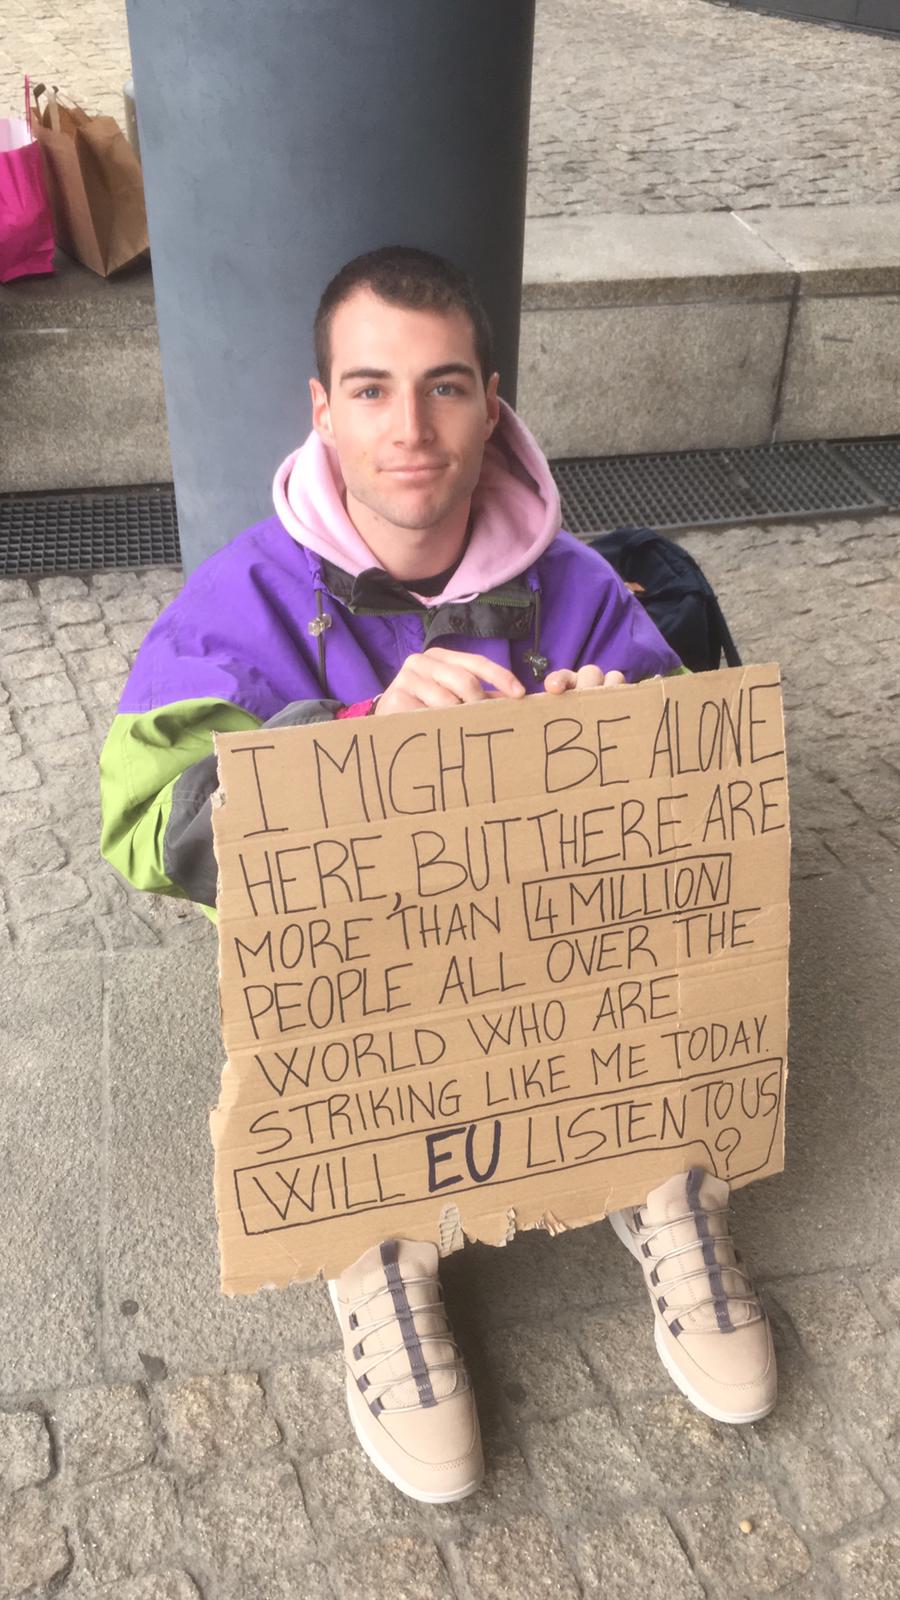 I MIGHT BE ALONE
HERE, BUT THERE ARE
MORE THAN 4 MILLION
PEOPLE ALL OVER THE
WORLD WHO ARE
STRIKING LIKE ME TODAY.
WILL EU LISTEN TO US
?